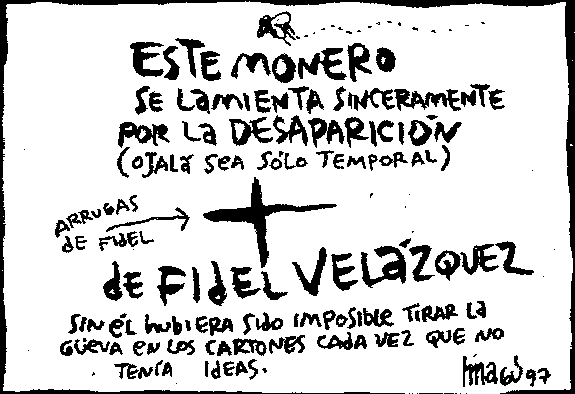 ESTE MONERO
SE LAMIENTA SINCERAMENTE
POR LA DESAPARICIÓN
(OJALÁ SEA SÓLO TEMPORAL)
ARRUGAS
DE FIDEL
DE FIDEL VELÁZQUEZ
SIN ÉL HUBIERA SIDO IMPOSIBLE TIRAR LA
GÜEVA EN LOS CARTONES CADA VEZ QUE NO
TENÍA IDEAS.
97